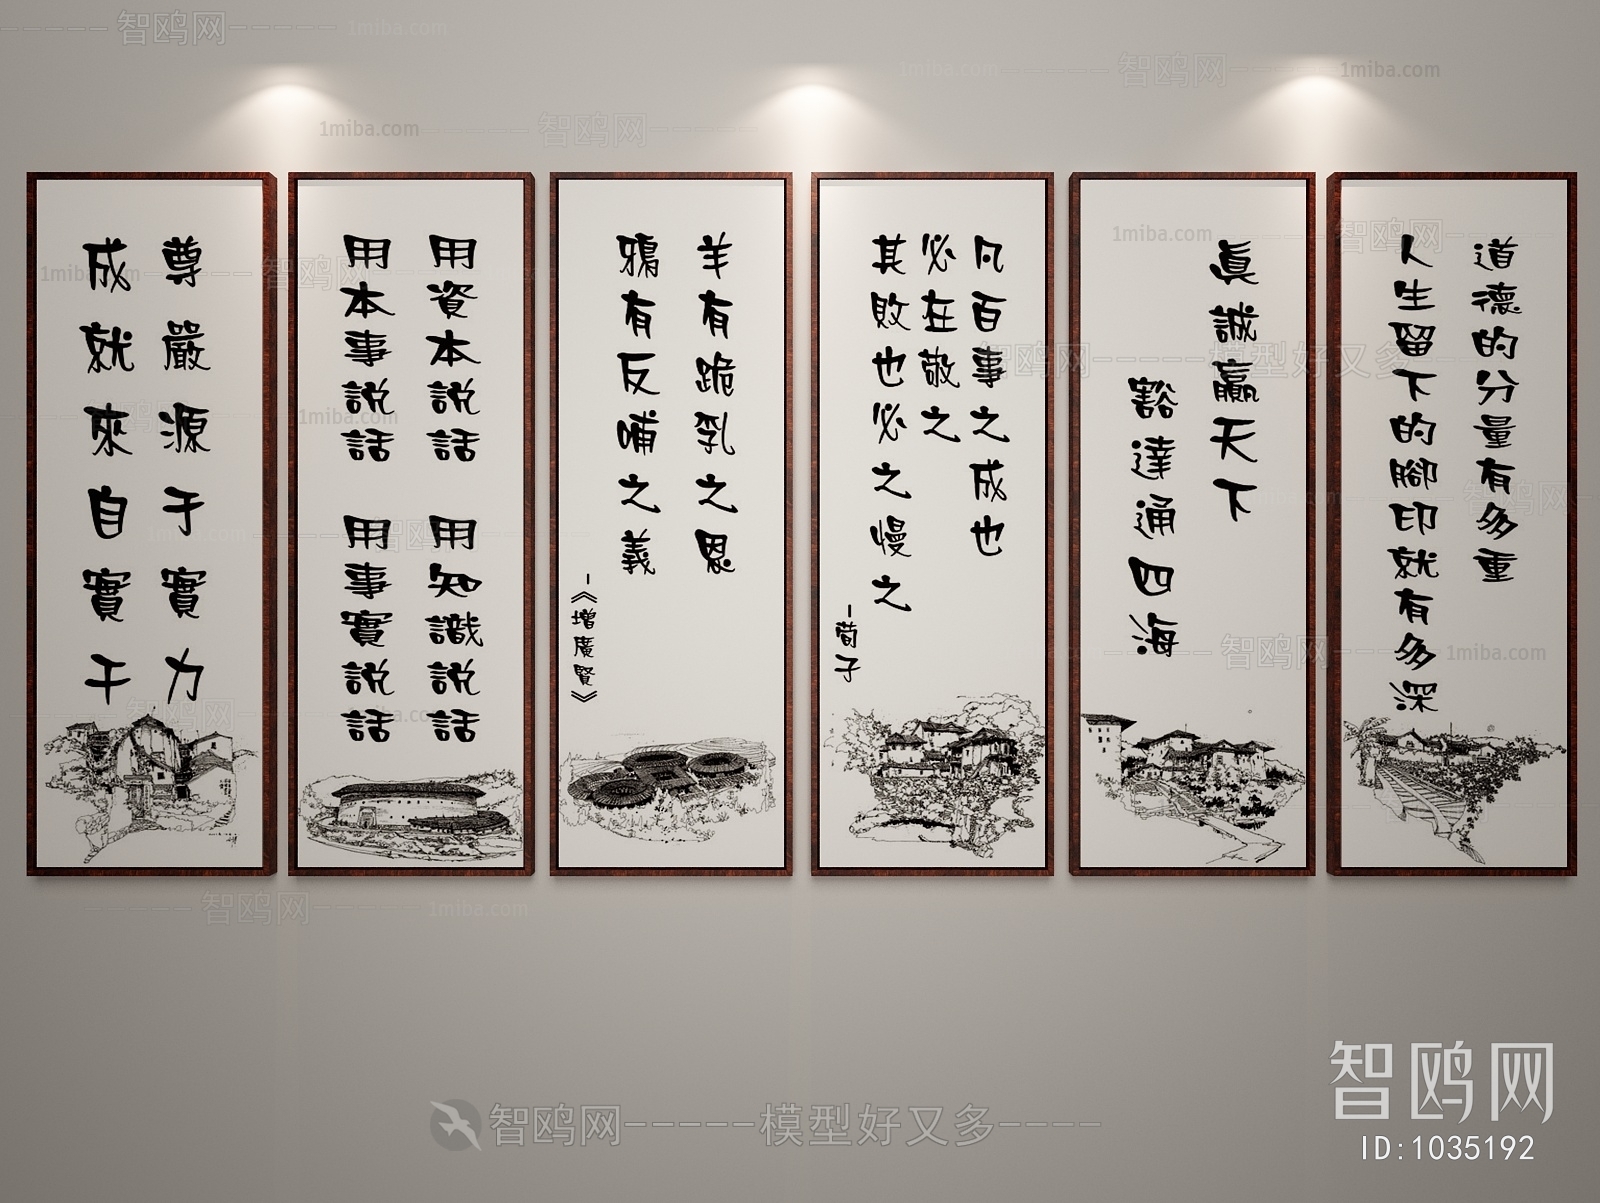 尊嚴源于實力
成就來自實干
用資本説話 用知識説話
用本事説話 用事實説話
羊有跪乳之恩
鴉有反哺之義
-《增廣賢》
凡百事之成也
必在敬之
其敗也必之慢之
-荀子
眞誠贏天下
豁達通四海
道德的分量有多重
人生留下的腳印就有多深
智鸥网-----模型好又多----
智鸥网
ID:1035192
1miba.com